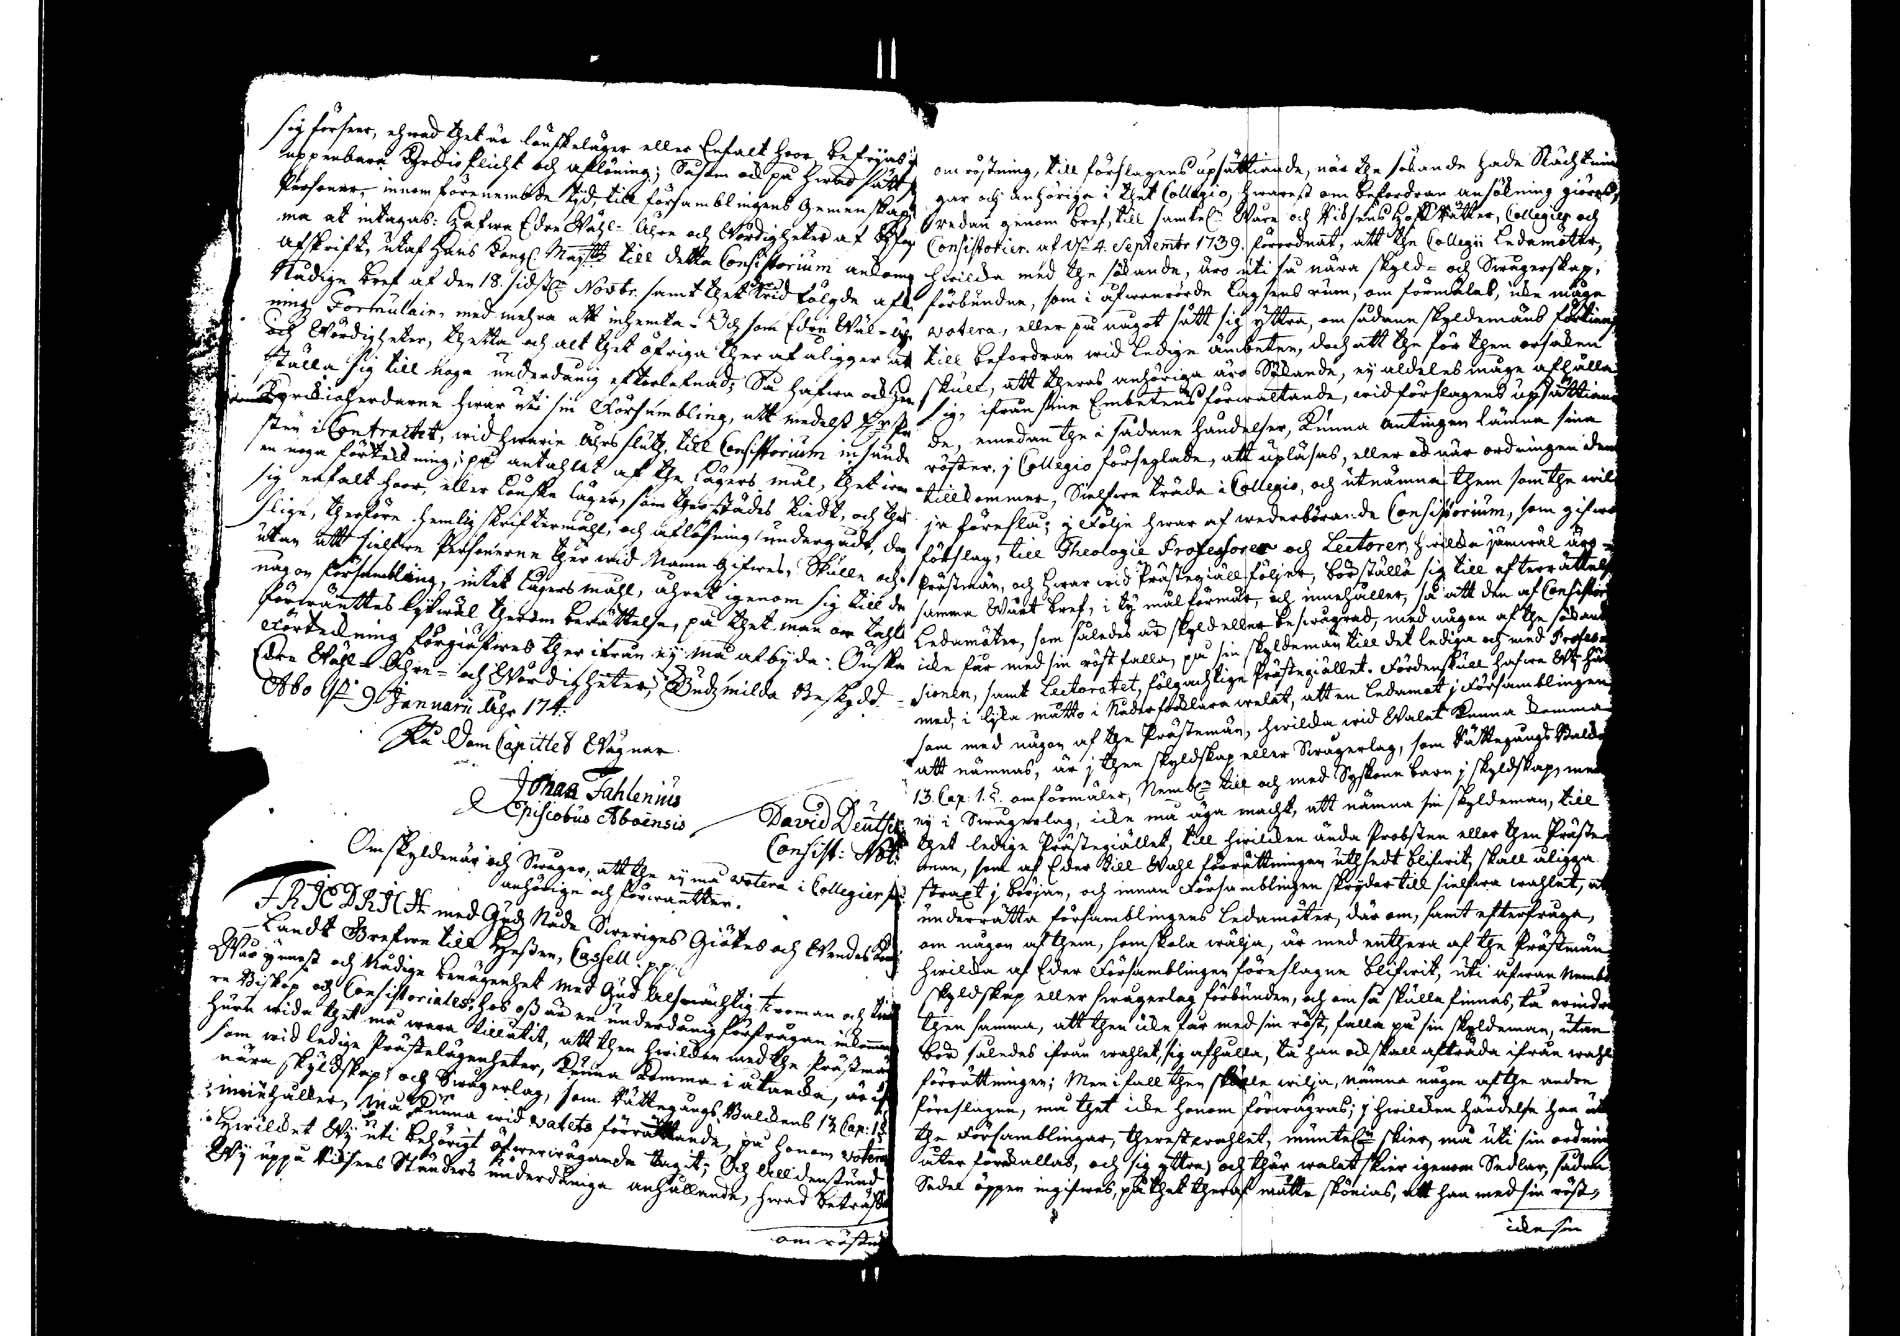 sig förseer, ehwad thet är Lönskeläger eller Enfalt hoor, befrijas ifr
uppenbara Kyrckioplicht och aflösning; Såsom ock på hwad sätt
Personer, innom förenembde tijd, till församblingens Gemenskap
ma at intagas: Hafwa Edre Wähl- Ähre och Wördigheter af
afskrift, utaf Hans Kongl. Maytts till detta Consistorium ankomg
Nådige bref af den 18. sidstl. Novbr. samt thet wid fölgde af
nings Formulair, med mehra att inhemta. Och som Edre Wäl- äh
och Wördigheter, thetta och alt thet öfriga ther af åligger at
ställa sig till noga underdånig efterlefnad; Så hafwa ock
Kyrckioherdarne hwar uti sin Försambling, att medelst Pro
sten i Contractet, wid hwarie åhrs slut, till Consistorium insända
en noga förtekning, på antahlet af the Lägers mål, thet
sig enfalt hoor, eller Lönske läger, som therstädes skiedt, och ther
före, therföre hemlig skriftermåhl, och aflösning undergådt, doc
utan att sielfwe Personerne ther wid Namn Gifwes, Skulle och
någon försambling, intet Lägersmåll, åhret igenom sig till dr
förwänttes lijkwäl therom berättelse, på thet man om tahle
förtekning förgiäfwes therifrån ej må afbijda: Önska
Edre Wähl- Ähre- och Wördigheter, Gudz milda Beskydd.
Åbo d. 9 Januarii Åhr 174.
På Dom Capitlets Wägnar.
Jonas Fahlenius
Episcobus Aboënsis
David Deutsch
Consist: Not:
Om skyldemän och Swåger, att the ej må votera i Collegier för
anhörige och förwantter.
FRIEDRICH med Gudz Nåde Sweriges Giötes och Wendes Kon
Landt Grefwe till Hessen, Cassell. p.p.
Wår ynnest och Nådige benägenhet med Gud Allsmächtig Troman och
re Biskop och Consistoriales; hos oss är en underdånig förfrågan inkommen
huru wida thet må wara tillåtit, att then hwilken med the Prästmän
som wid ledige Prästelägenheter, kunna komma i åtanka, är i
nära skyldskap och Swågerlag, som Rättegångs Baldens 13 Cap: 1 §
innehåller, må kunna wid valets förrättande, på honom votera
Hwilket Wij uti behörigt öfwerwägande tagit; Och till den stund
Wij uppå Rikssens Ständers underdåniga anhållande, hwad beträff
om röstni
om röstning, till förslagens upsättiande, när the sökande hade Släcktnin
gar och anhöriga i thet Collegio, hwarest om befordran ansökning giöres,
redan genom bref, till samtel. Wåre och Riksens Hofrätter, Collegier och
Consistorier af d. 4. Septembr 1739. förordnat, att the Collegii Ledamöter,
hwilcka med the sökande, äro uti så nära skyld- och Swågerskap,
förbundne, som i ofwanrörde Lagsens rum, om förmäles, icke måge
votera, eller på något sätt sig yttra, om sådane skyldemäns förtienst
till befordran wid ledige ämbeten, doch att the för then orsaken
skull, att theras anhöriga äro Sökande, ej aldeles måge afhålla
sig, ifrån sine Embetens förwaltande, wid förslagens upsättian
de, emedan the i sådane händelser, kunna antingen lämna sina
röster, i Collegio förseglade, att upläsas, eller och när ordningen dem
tillkommer, Sielfwe träda i Collegio, och utnämna them som the wil
ja föreslå; j Följe hwar af wederbörande Consistorium, som gifwa
förslag, till Theologie Professorer och Lectorer, hwilcka jämwäl äro
Prästmän, och hwar wid Prästegiäll följer, bör ställa sig till efterrättelse
samma Wårt bref, i ty mål förmår, och innehåller, så att den af Consistorii
Ledamöter, som således är skyld eller beswågrad, med någon af the sökande
icke får med sin röst falla, på sin skyldeman till det lediga och med Profes
sionen, samt Lectoratet, fölgachtige Prästegiället. Fördenskull hafwa Wij här
med, i lijka måtto i Nåder förklara welat, att en Ledamot i Församblingen
som med någon af the Prästemän, hwilcka wid Walet kunna komma
att nämnas, är i then skyldskap eller Swågerlag, som Rättegångs Balken
13. Cap. 1. §. omförmäler, Nembl. till och med Syskone barn i skyldskap, men
ej i Swågerlag, icke må äga macht, att nämna sin skyldeman, till
thet ledige Prästegiället, till hwilcken ända Probsten eller then Präste
man, som af Eder till Wahl förrättningen uthsedt blifwit, skall åligga
straxt i början, och innan Församblingen skrijder till sielfwa wahlet, at
underrätta församblingens Ledamöter, där om, samt efterfråga,
om någon af them, som skola wälja, är med enthera af the Prästmän
hwilcka af Eder Församblingen föreslagne blifwit, uti ofwan Nembde
skyldskap eller swågerlag förbunden, och om så skulle finnas, tå erindra
then samma, att then icke får med sin röst, falla på sin skyldeman, utan
bör således ifrån wahlet, sig afhålla, tå han ock skall afträda ifrån wahl
förrättningen; Men i fall then skulle wilja, nämna någon af the andre
föreslagne, må thet icke honom förwägras; j hwilcken händelse han
the Församblingar, therest wahlet, muntel. skier, må uti sin ordning
åter förekallas, och sig yttra; och thär walet skier igenom Sedlar, sådan
Sedel öppen ingifwas, på thet theraf måtte skönias, att han med sin röst,
icke sin